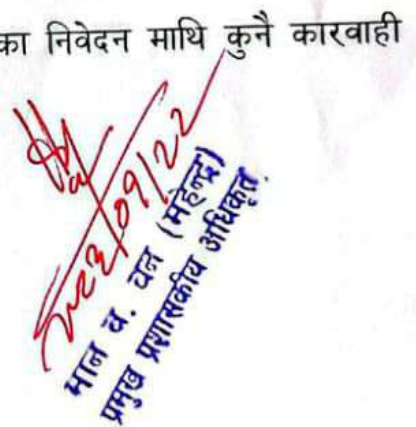 का निवेदन माथि कुनै कारवाही
मान ब. वन (महेन्द्र)
प्रमुख प्रशासकीय अधिकृत